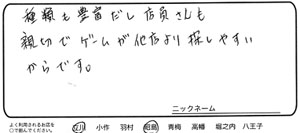 種類も豊富だし店員さんも
親切でゲームが他店より探しやすい
からです。
ニックネーム
よく利用されるお店を
○で囲んでください。
立川 小作 羽村 昭島 青梅 高幡 堀之内 八王子